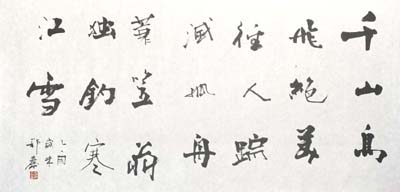 千山鳥
飛絶萬
徑人踪
滅孤舟
蓑笠翁
独釣寒
江雪